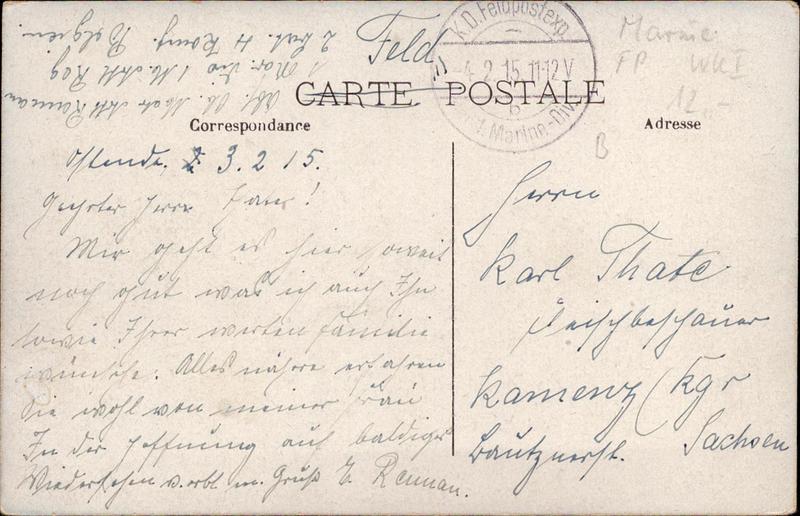 Feld
K.D. Feldpostexp.
-4.2.15.11-12V
b
1. Marine-Div.
Marine
FP WKI
12,-
B
CARTE POSTALE
Correspondance
Adresse
Ostende. 3.2.15.
Geehrter Herr
Mir geht es hier soweit
noch gut was ich auch Ihn
sowie Ihrer werten Familie
wünsche. Alles nähre erfahren
Sie wohl von meiner Frau
In der Hoffnung auf baldiges
Wiedersehen v. erbl. m. Gruß E. Rennau.
Herrn
Karl Thate
Fleischbeschauer
Kamenz / Kgr
Sachsen
Bautznerst.
Abs. Ob. Matr. Art.
1 Mar. Div 1 M. Art. Reg
2 Bat. 4 Komp. Belgien